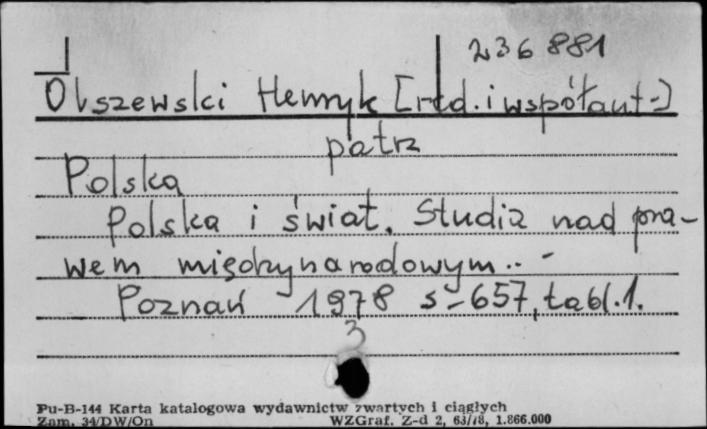 236881
Olszewski Henryk [red. i współaut-]
patrz
Polska
Polska i świat. Studia nad pra-
wem międzynarodowym.. -
Poznań 1978 s-657, tabl.1.
3
Pu-B-144 Karta katalogowa wydawnictw zwartych i ciągłych
Zam. 34/DW/On WZGraf. Z-d 2, 63/78, 1.866.000